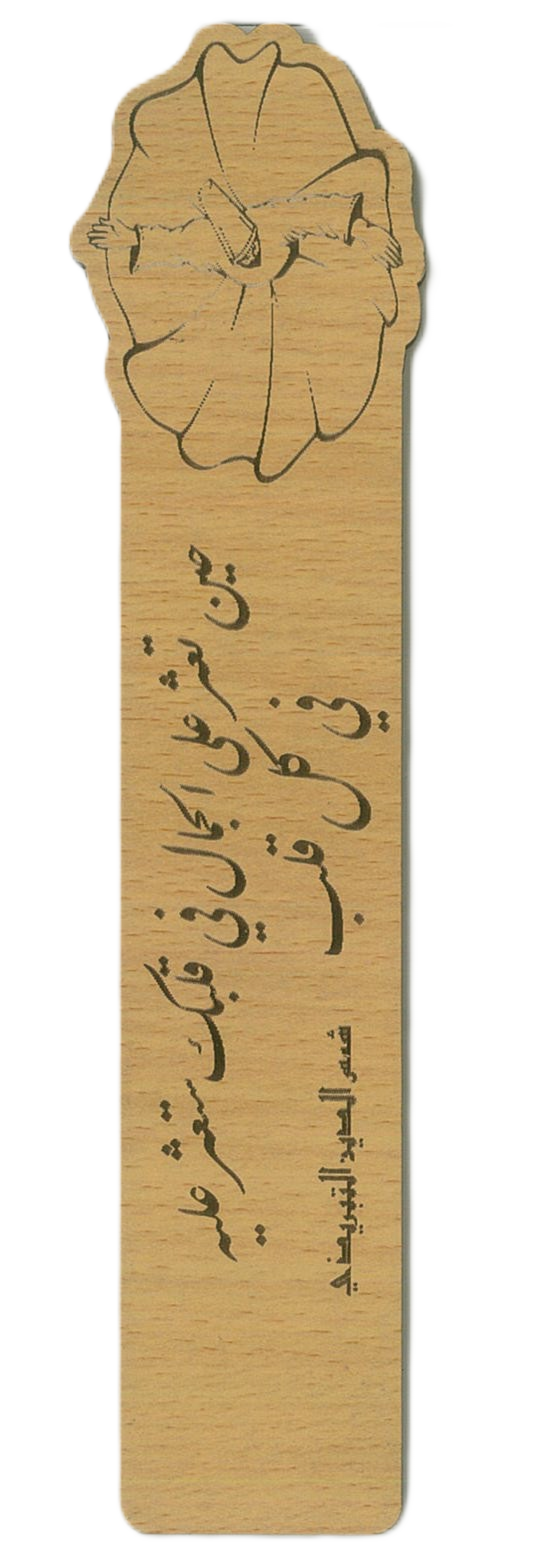 حين تعثر على الجمال في قلبك ستعثر عليه
في كل قلب
شمس الدين التبريزي